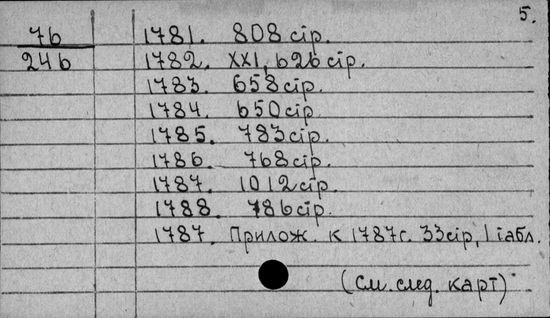 5.
7б 1781. 808 стр.
24б 1782. XXI, 626 стр.
1783. 658 стр.
1784. 650 стр.
1785. 783 стр.
1786. 768 стр.
1787. 1012 стр.
1788. 786 стр.
1787. Прилож. к 1787г. 33 стр, 1 табл.
(См. след. карт)